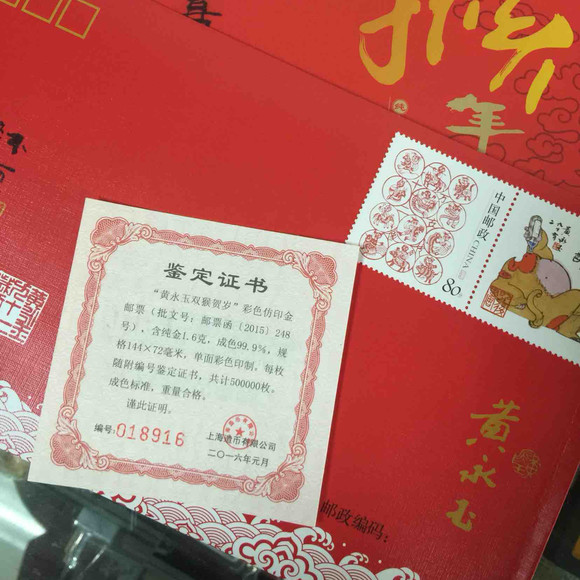 猴
年
中国邮政
CHINA
80
鉴定证书
“黄永玉双猴贺岁”彩色仿印金
邮票（批文号：邮票函〔2015〕248
号），含纯金1.6克，成色99.9%，规
格144×72毫米，单面彩色印制。每枚
随附编号鉴定证书，共计500000枚。
成色标准，重量合格。
谨此证明。
编号:018916
上海造币有限公司
二〇一六年元月
黄永玉
邮政编码：